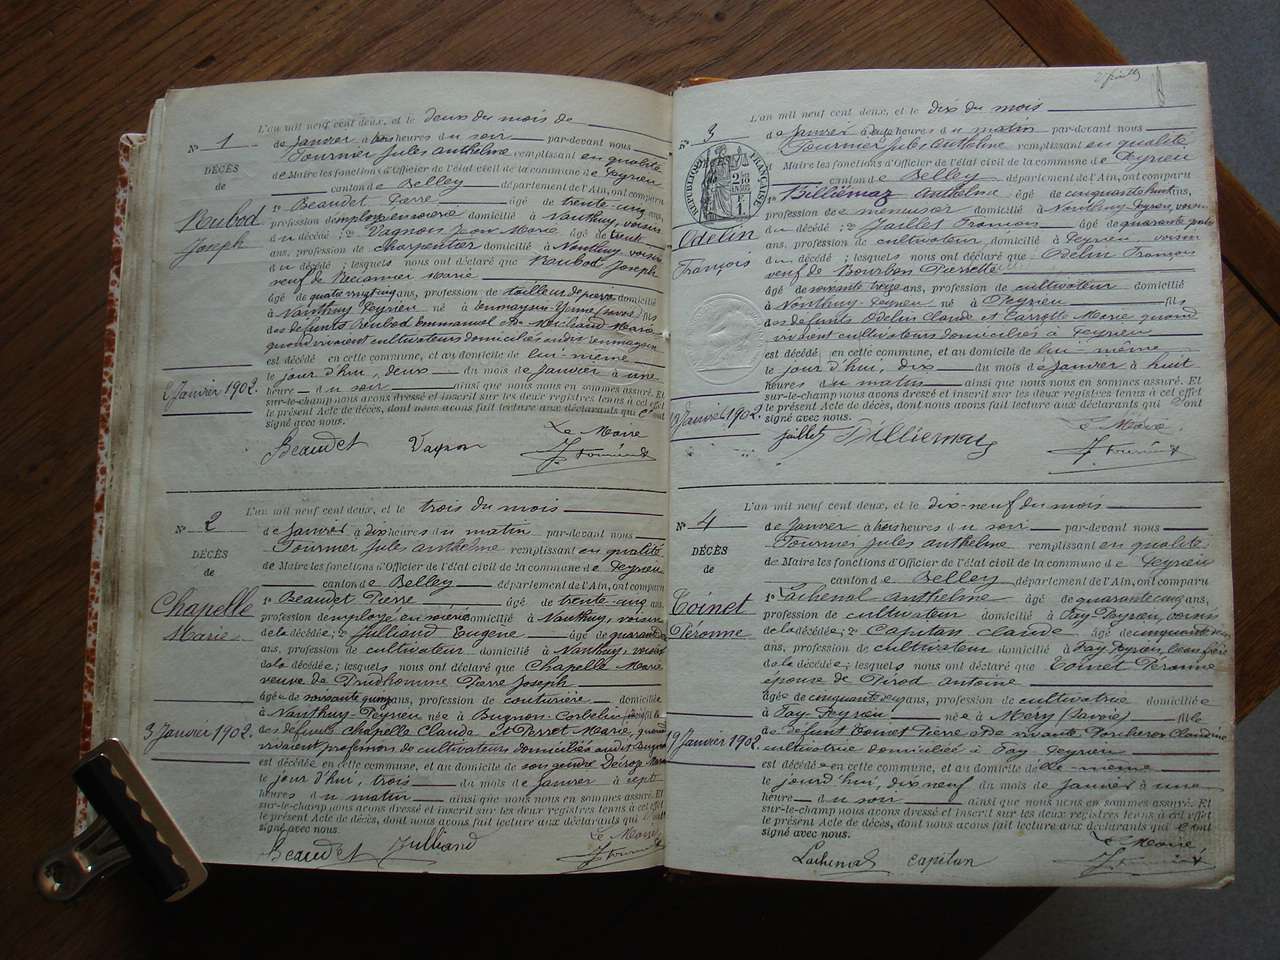 L'an mil neuf cent deux, et le deux du mois de
N° 1
de Janvier à heures du soir par-devant nous
Fournier Jules Anthelme remplissant en qualité
DÉCÈS
de Maire les fonctions d'Officier de l'état civil de la commune de Peyrieu
de
canton de Belley département de l'Ain, ont comparu
1° Beaudet Pierre âgé de trente-cinq ans,
Rubod
profession d'employé en soierie domicilié à Nanthuy, voisin
Joseph
du décédé; 2° Vagnon Jean Marie âgé de trente
ans, profession de charpentier domicilié à Nanthuy voisin
du décédé; lesquels nous ont déclaré que Rubod Joseph
veuf de Marie
âgé de quatre vingt cinq ans, profession de tailleur de pierre domicilié
à Nanthuy Peyrieu né à fils
des défunts Rubod Emmanuel et de Michaud Marie
quand vivaient cultivateurs domiciliés
est décédé en cette commune, et au domicile de lui-même
2 Janvier 1902.
le jour d'hui, deux du mois de Janvier à une
heure du soir ainsi que nous nous en sommes assuré. Et
sur-le-champ nous avons dressé et inscrit sur les deux registres tenus à cet effet
le présent Acte de décès, dont nous avons fait lecture aux déclarants qui l'ont
signé avec nous.
Le Maire
Beaudet Vagnon J. Fournier
L'an mil neuf cent deux, et le trois du mois
N° 2
de Janvier à dix heures du matin par-devant nous
Fournier Jules Anthelme remplissant en qualité
DÉCÈS
de Maire les fonctions d'Officier de l'état civil de la commune de Peyrieu
de
canton de Belley département de l'Ain, ont comparu
Chapelle
1° Beaudet Pierre âgé de trente-cinq ans,
profession d'employé en soierie domicilié à Nanthuy, voisin
Marie
de la décédée; 2° Julliand Eugène âgé de quarante
ans, profession de cultivateur domicilié à Nanthuy, voisin
de la décédée; lesquels nous ont déclaré que Chapelle Marie
veuve de Prudhomme Pierre Joseph
âgée de soixante quinze ans, profession de couturière domiciliée
à Nanthuy-Peyrieu née à Brégnier-Cordon fille
3 Janvier 1902.
des défunts Chapelle Claude et Perret Marie, quand
vivaient profession de cultivateurs domiciliés audit
est décédée en cette commune, et au domicile de son gendre
le jour d'hui, trois du mois de Janvier à sept
heures du matin ainsi que nous nous en sommes assuré. Et
sur-le-champ nous avons dressé et inscrit sur les deux registres tenus à cet effet
le présent Acte de décès, dont nous avons fait lecture aux déclarants qui l'ont
signé avec nous.
Le Maire
Beaudet Julliand J. Fournier
L'an mil neuf cent deux, et le dix du mois
N° 3
de Janvier à heures du matin par-devant nous
Fournier Jules Anthelme remplissant en qualité
de Maire les fonctions d'Officier de l'état civil de la commune de Peyrieu
canton de Belley département de l'Ain, ont comparu
RÉPUBLIQUE FRANÇAISE
1° Billiémaz Anthelme âgé de cinquante huit ans,
profession de menuisier domicilié à Nanthuy-Peyrieu, voisin
Odelin
du décédé; 2° Jaillet François âgé de quarante
ans, profession de cultivateur domicilié à Peyrieu voisin
François
du décédé; lesquels nous ont déclaré que Odelin François
veuf de Bourbon Pierrette
âgé de soixante treize ans, profession de cultivateur domicilié
à Nanthuy-Peyrieu né à Peyrieu fils
des défunts Odelin Claude et Carrotte Marie quand
vivaient cultivateurs domiciliés à Peyrieu
est décédé en cette commune, et au domicile de lui-même
le jour d'hui, dix du mois de Janvier à huit
heures du matin ainsi que nous nous en sommes assuré. Et
sur-le-champ nous avons dressé et inscrit sur les deux registres tenus à cet effet
Janvier 1902.
le présent Acte de décès, dont nous avons fait lecture aux déclarants qui l'ont
signé avec nous.
Le Maire
Jaillet Billiemaz J. Fournier
L'an mil neuf cent deux, et le dix-neuf du mois
N° 4
de Janvier à heures du soir par-devant nous
Fournier Jules Anthelme remplissant en qualité
DÉCÈS
de Maire les fonctions d'Officier de l'état civil de la commune de Peyrieu
de
canton de Belley département de l'Ain, ont comparu
Coinet
1° Lachenal Anthelme âgé de quarante cinq ans,
profession de cultivateur domicilié à Fay-Peyrieu, voisin
Péronne
de la décédée; 2° Capitan Claude âgé de cinquante
ans, profession de cultivateur domicilié à Fay Peyrieu, beau frère
de la décédée; lesquels nous ont déclaré que Coinet Péronne
épouse de Pirod Antoine
âgée de cinquante deux ans, profession de cultivatrice domiciliée
à Fay Peyrieu née à Mery (Savoie) fille
19 Janvier 1902.
de défunt Coinet Pierre et de vivante Porcheron Claudine
cultivatrice domiciliée à Fay Peyrieu
est décédée en cette commune, et au domicile de
le jourd'hui, dix neuf du mois de Janvier à une
heure du soir ainsi que nous nous en sommes assuré. Et
sur-le-champ nous avons dressé et inscrit sur les deux registres tenus à cet effet
le présent Acte de décès, dont nous avons fait lecture aux déclarants qui l'ont
signé avec nous.
Le Maire
Lachenal Capitan J. Fournier